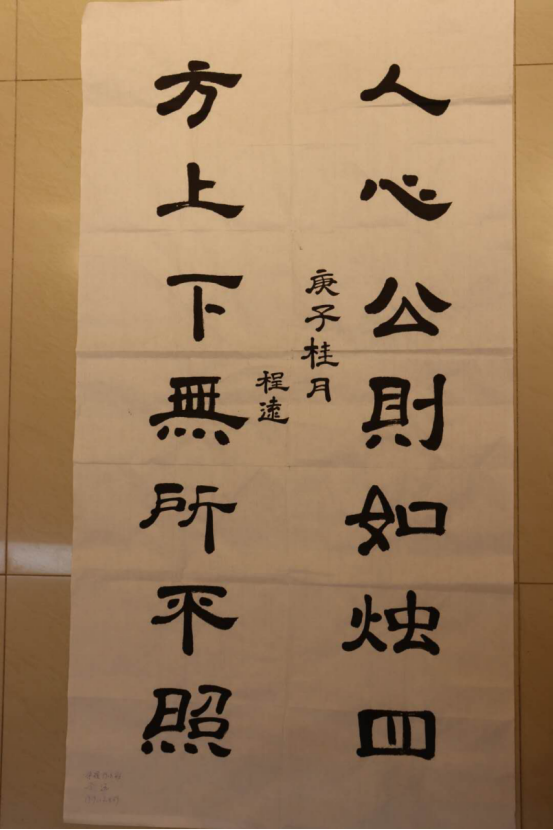 人心公則如烛四
方上下無所平照
庚子桂月
程遠